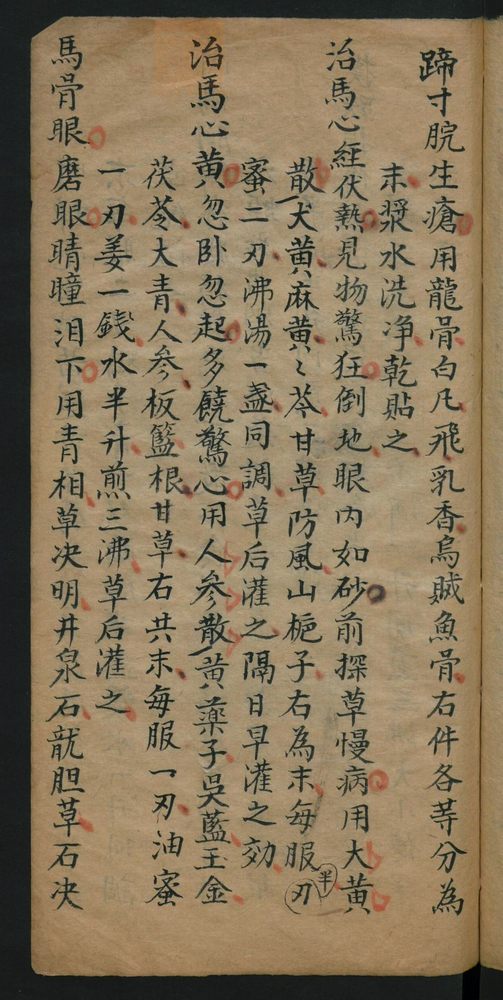 蹄寸脘生瘡用龍骨白凡飛乳香烏賊魚骨右件各等分為
末漿水洗净乾貼之
治馬心經伏熱見物驚狂倒地眼内如砂前探草慢病用大黄
散犬黄麻黄〻芩甘草防風山梔子右為末每服半刄
蜜二刄沸湯一盏同調草后灌之隔日早灌之効
治馬心黄忽卧忽起多饒驚心用人參散黄藥子吳藍玉金
茯苓大青人參板籃根甘草右共末每服一刄油蜜
一刄姜一錢水半升煎三沸草后灌之
馬骨眼磨眼睛瞳泪下用青相草决明井泉石龍胆草石决